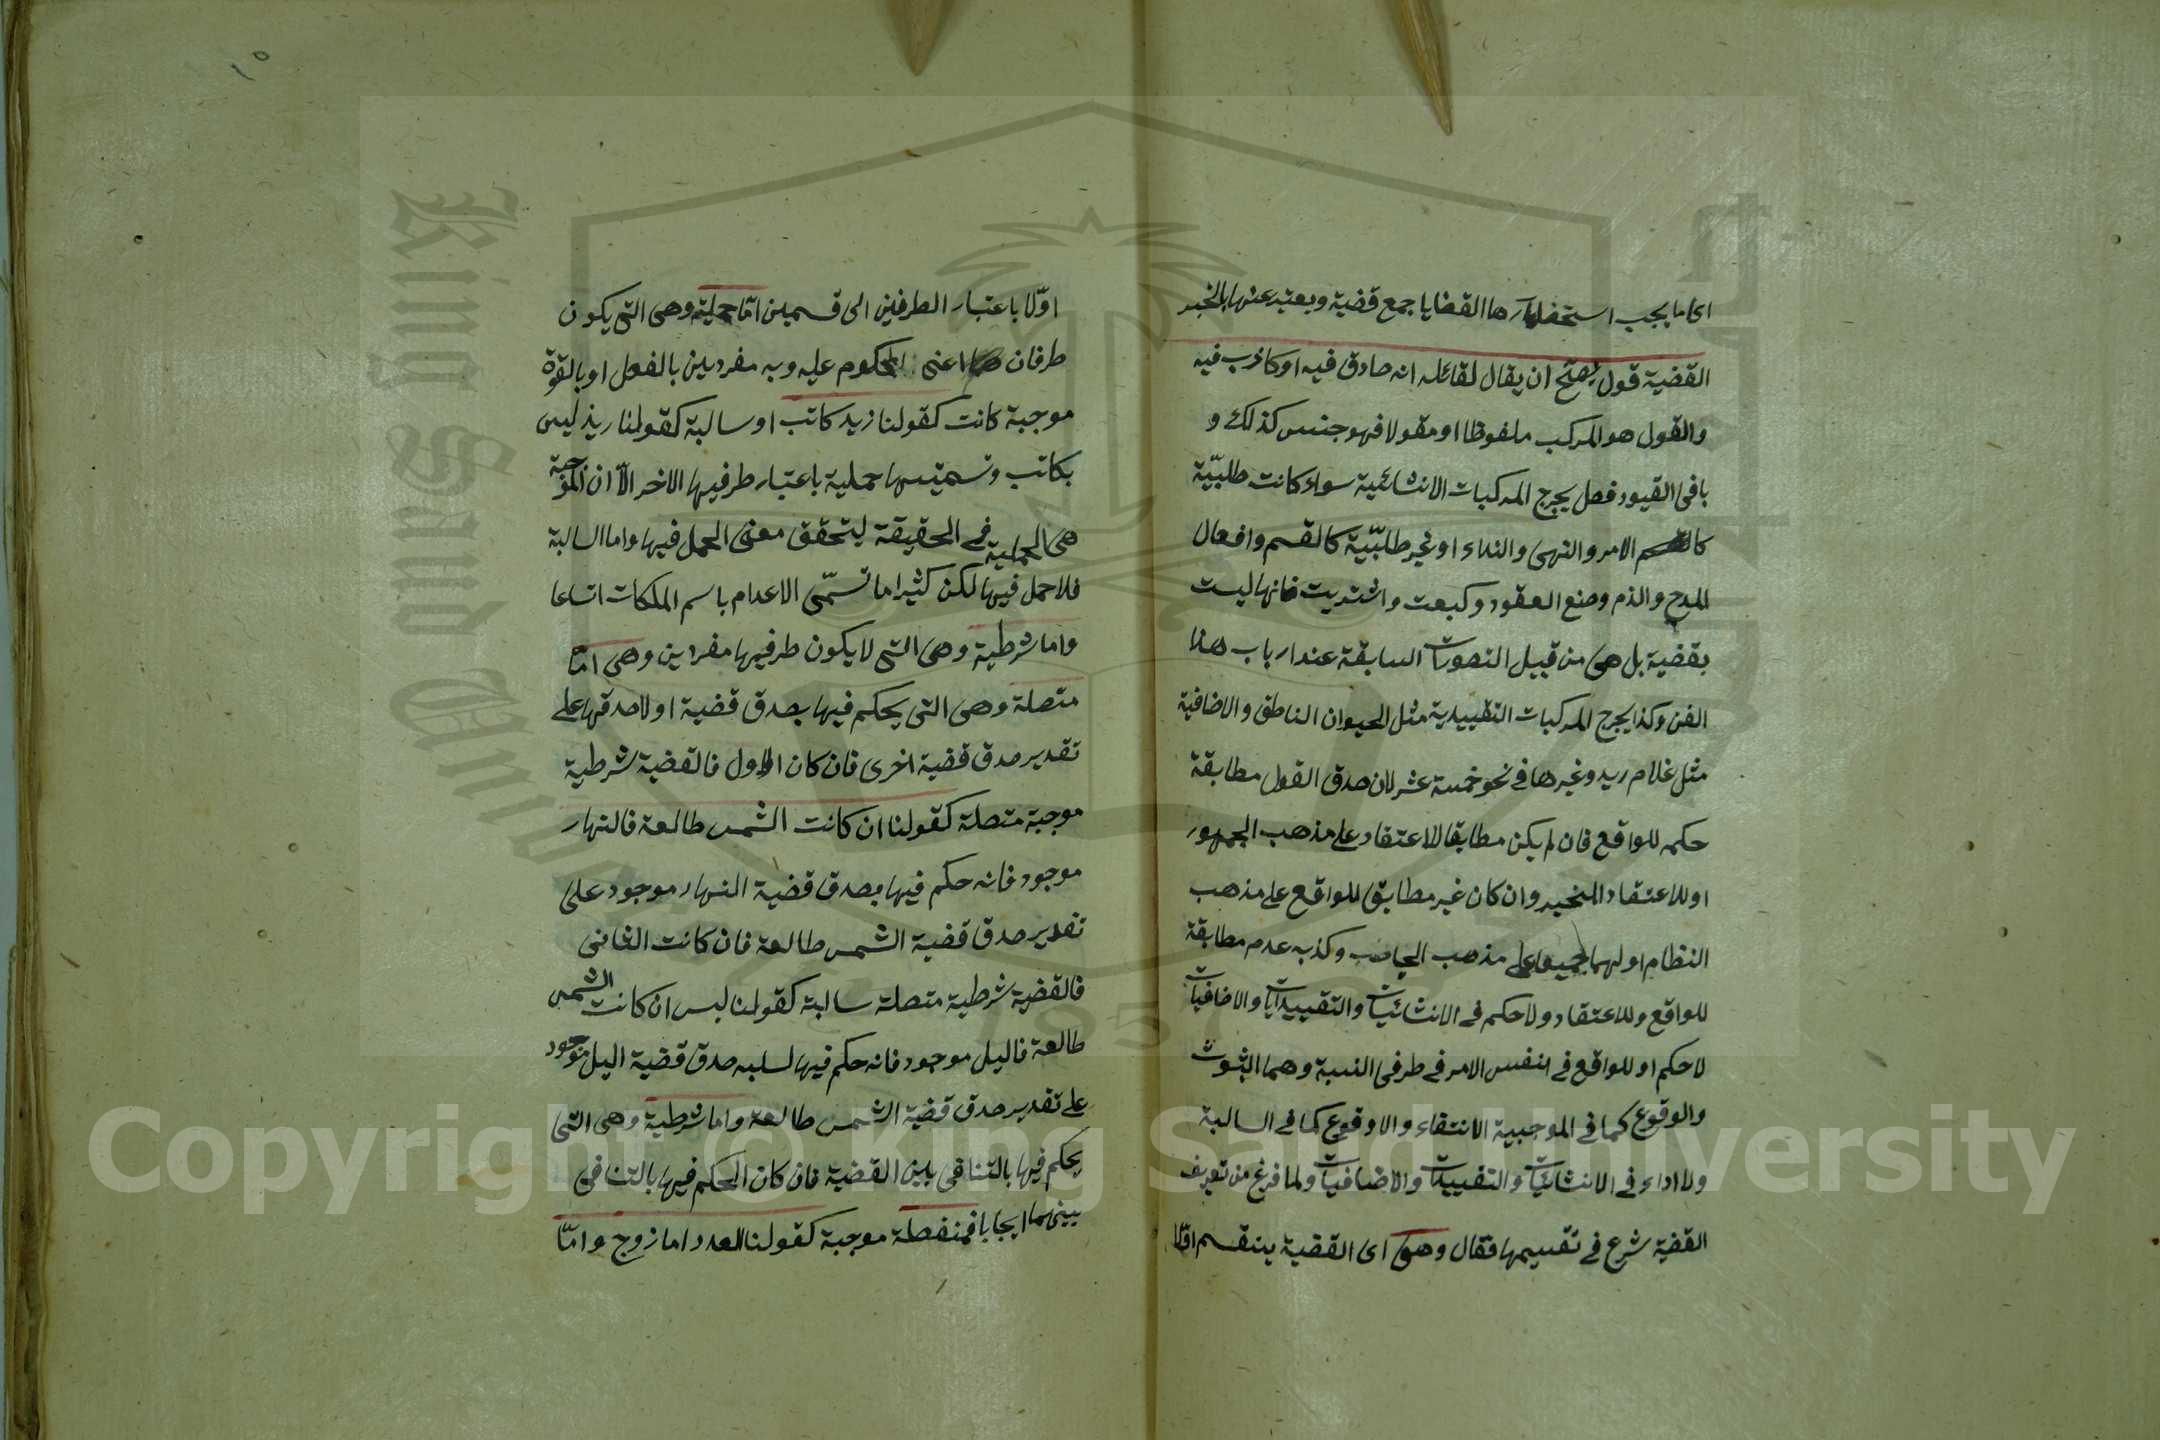 اى ما يجب استحضارها القضايا جمع قضية ويعتبر عنها بالخبر
القضية قول يصح ان يقال لقائله انه صادق فيه او كاذب فيه
والقول هو المركب ملفوظا او مقولا فهو جنس كذلك و
باقى القيود فصل يخرج المركبات الانشائية سواء كانت طلبيّة
الامر والنهى والنداء او غير طلبيّية كالقسم وافعال
المدح والذم وصنع العقود وكبعت واشتريت فانها ليست
بقضية بل هى من قبيل التصورات السابقة عند ارباب هذا
الفن وكذا يخرج المركبات التقييدية مثل الحيوان الناطق والاضافية
مثل غلام زيد وغيرها فى نحو خمسة عشر لان صدق القول مطابقة
حكمه للواقع فان لم يكن مطابقا لاعتقاد على مذهب الجمهور
او للاعتقاد المخبر وان كان غير مطابق للواقع على مذهب
النظام او لهما جميعا على مذهب الجاحظ وكذبه عدم مطابقة
للواقع وللاعتقاد ولا حكم فى الانشائيات والتقييدات والاضافيات
لا حكم او للواقع فى نفس الامر فى طرفى النسبة وهما الثبوت
والوقوع كما فى الموجبية الانتقاء والاوقوع كما فى السالبة
ولا اداء فى الانشائيات والتقييدات والاضافيات ولما فرغ من تعريف
القضية شرع فى تقسيمها فقال وهى اى القضية ينقسم اوّلا
١٥
اوّلا باعتبار الطرفين الى قسمين امّا حملية وهى التى يكون
طرفان اعنى المحكوم عليه وبه مفردين بالفعل او بالقوة
موجبة كانت كقولنا زيد كاتب او سالبة كقولنا زيد ليس
بكاتب وتسميتها حملية باعتبار طرفيها الاخر الاّ ان الموجبة
هى الحملية فى الحقيقة ليتحقق معنى الحمل فيها واما السالبة
فلا حمل فيها لكن كثيرا ما تسمّى الاعدام باسم الملكات اتساعا
واما شرطية وهى التى لا يكون طرفيها مفردين وهى امّا
متصلة وهى التى يحكم فيها بصدق قضية او لا صدقها على
تقدير صدق قضية اخرى فان كان الاول فالقضية شرطية
موجبة متصلة كقولنا ان كانت الشمس طالعة فالنهار
موجود فانه حكم فيها بصدق قضية النهار موجود على
تقدير صدق قضية الشمس طالعة فان كانت الثانى
فالقضية شرطية متصلة سالبة كقولنا ليس ان كانت الشمس
طالعة فاليل موجود فانه حكم فيها لسلبه صدق قضية اليل موجود
على تقدير صدق قضية الشمس طالعة واما شرطية وهى التى
يحكم فيها بالتنافى بين القضية فان كان الحكم فيها بالتنافى
بينهما ايجابا فمنفصلة موجبة كقولنا العدد اما زوج وامّا
Copyright © King Saud University
King Saud University
1957